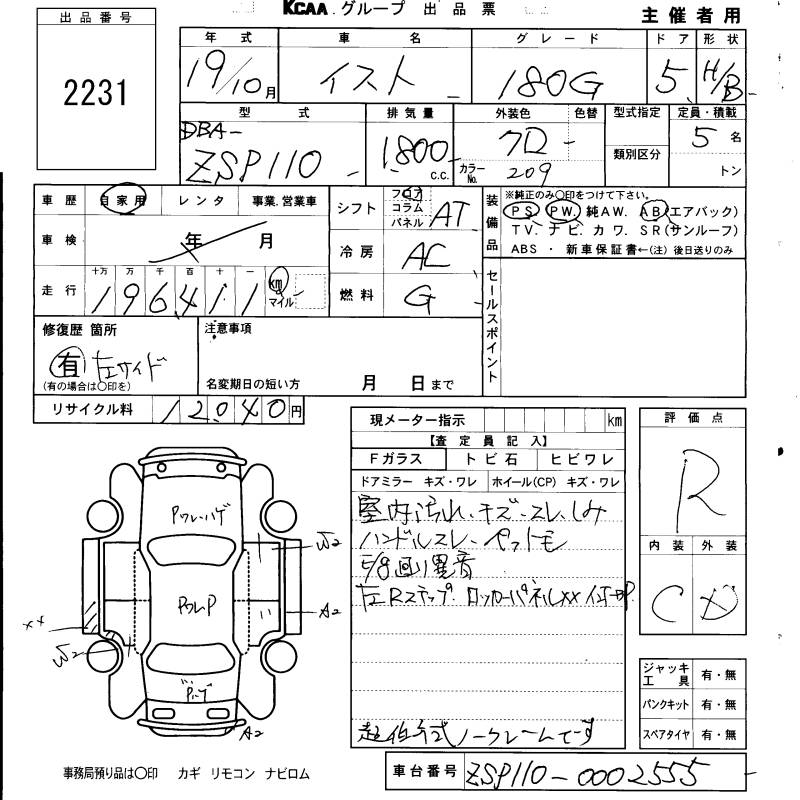 KCAA グループ 出品票
主催者用
出品番号
2231
年式 車名 グレード ドア 形状
19/10月 イスト 180G 5 H/B
型式 排気量 外装色 色替 型式指定 定員・積載
DBA-
ZSP110 1800 c.c. クロ 5名
カラーNo. 209 類別区分 トン
車歴 自家用 レンタ 事業.営業車
車検 年 月
走行 十万 万 千 百 十 一
196,411 km マイル
シフト フロア コラム パネル AT
冷房 AC
燃料 G
装備品
※純正のみ〇印をつけて下さい。
PS PW. 純AW. AB(エアバック)
TV. ナビ. カワ. SR(サンルーフ)
ABS ・ 新車保証書←(注) 後日送りのみ
セールスポイント
修復歴 箇所
有 左サイド
(有の場合は〇印を)
注意事項
名変期日の短い方 月 日まで
リサイクル料 12040円
現メーター指示 km
【査定員記入】
Fガラス トビ石 ヒビワレ
ドアミラー キズ・ワレ ホイール(CP) キズ・ワレ
室内汚れ、キズ・スレ、しみ
ハンドルスレ
異音
左Rステップ. ロッカーパネルXX
ノークレームです
評価点
R
内装 外装
C D
Pワレハゲ
PワレP
W2
A2
XX
W2
A2
ジャッキ
工具 有・無
パンクキット 有・無
スペアタイヤ 有・無
事務局預り品は〇印 カギ リモコン ナビロム
車台番号 ZSP110-0002555